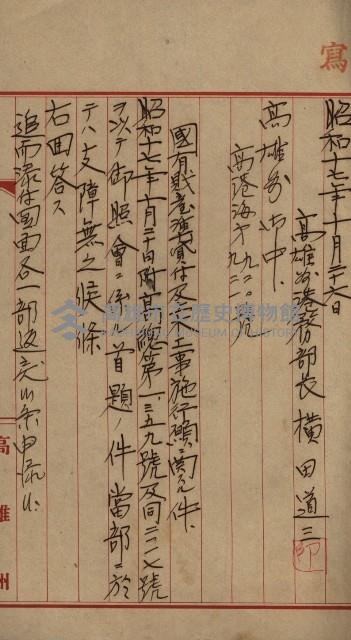 寫
昭和十七年十月二十六日
高雄州港務部長 橫田道三 印
高雄州御中
高港海第九二〇號
國有財產海貸付及工事施行願ニ關スル件
昭和十七年十月二十日附高總第一三五九號及同三二七號
ヲ以テ御照會ニ係ル首題ノ件當部ニ於
テハ支障無之候條
右回答ス
追而添付圖面各一部返戾候條申添候
高雄州
高雄市立歷史博物館
MUSEUM OF HISTORY